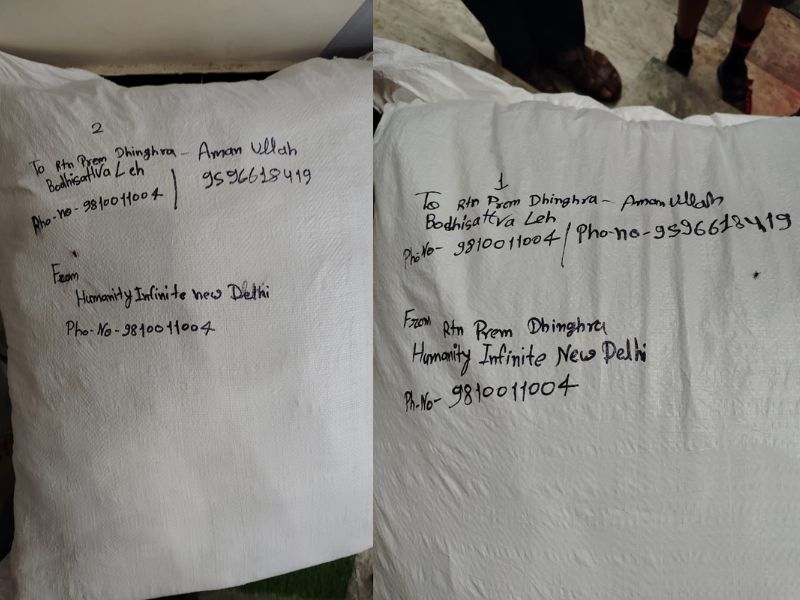 2
To Rtn Prem Dhinghra - Aman Ullah
Bodhisattva Leh
Pho-no-9810011004 | 9596618419
From
Humanity Infinite new Delhi
Pho-No-9810011004
1
To Rtn Prem Dhinghra - Aman Ullah
Bodhisattva Leh
Pho No- 9810011004 / Pho-no-9596618419
From Rtn Prem Dhinghra
Humanity Infinite New Delhi
Ph.No- 9810011004